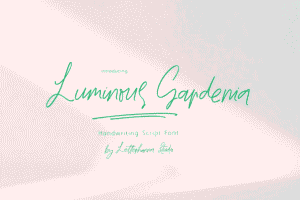 Introducing
Luminous Gardenia
Handwriting Script Font
by Letterhanna Studio